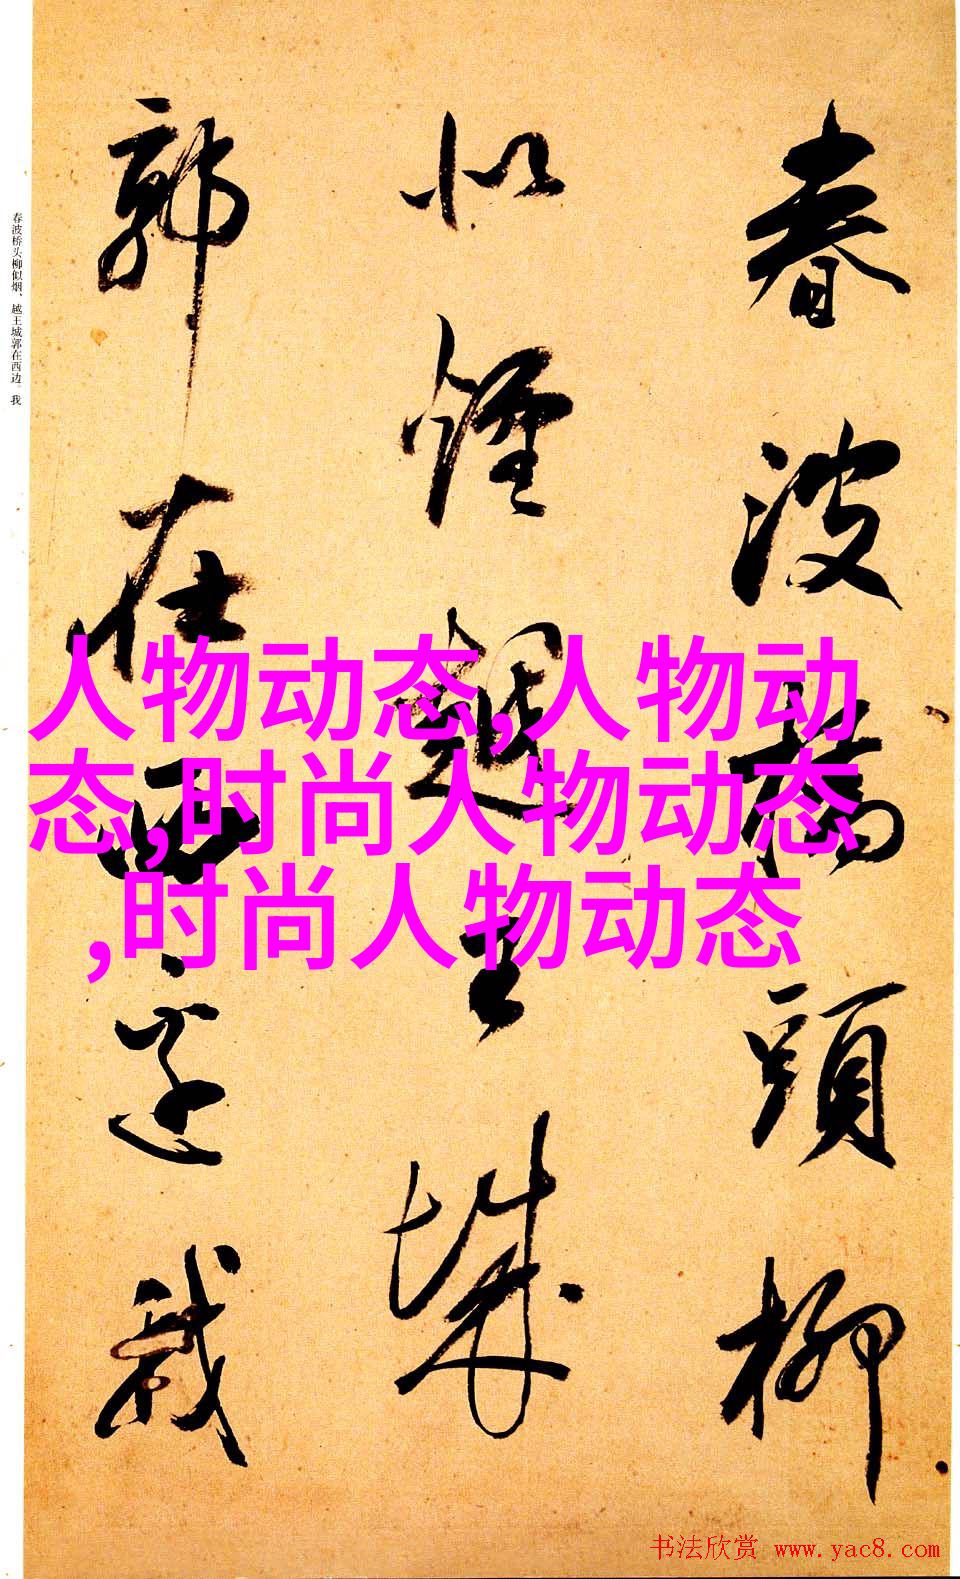 春波橋頭柳
似煙越王城
郭在西邊我
春波桥头柳似烟、越王城郭在西边。我
人物动态,人物动
态,时尚人物动态
,时尚人物动态
书法欣赏 www.yac8.com